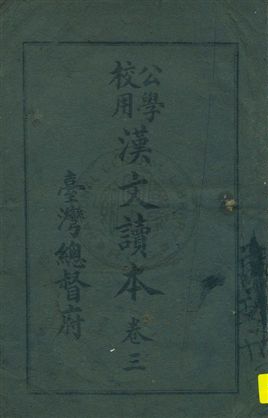 公學
校用
漢文讀本 卷三
臺灣總督府